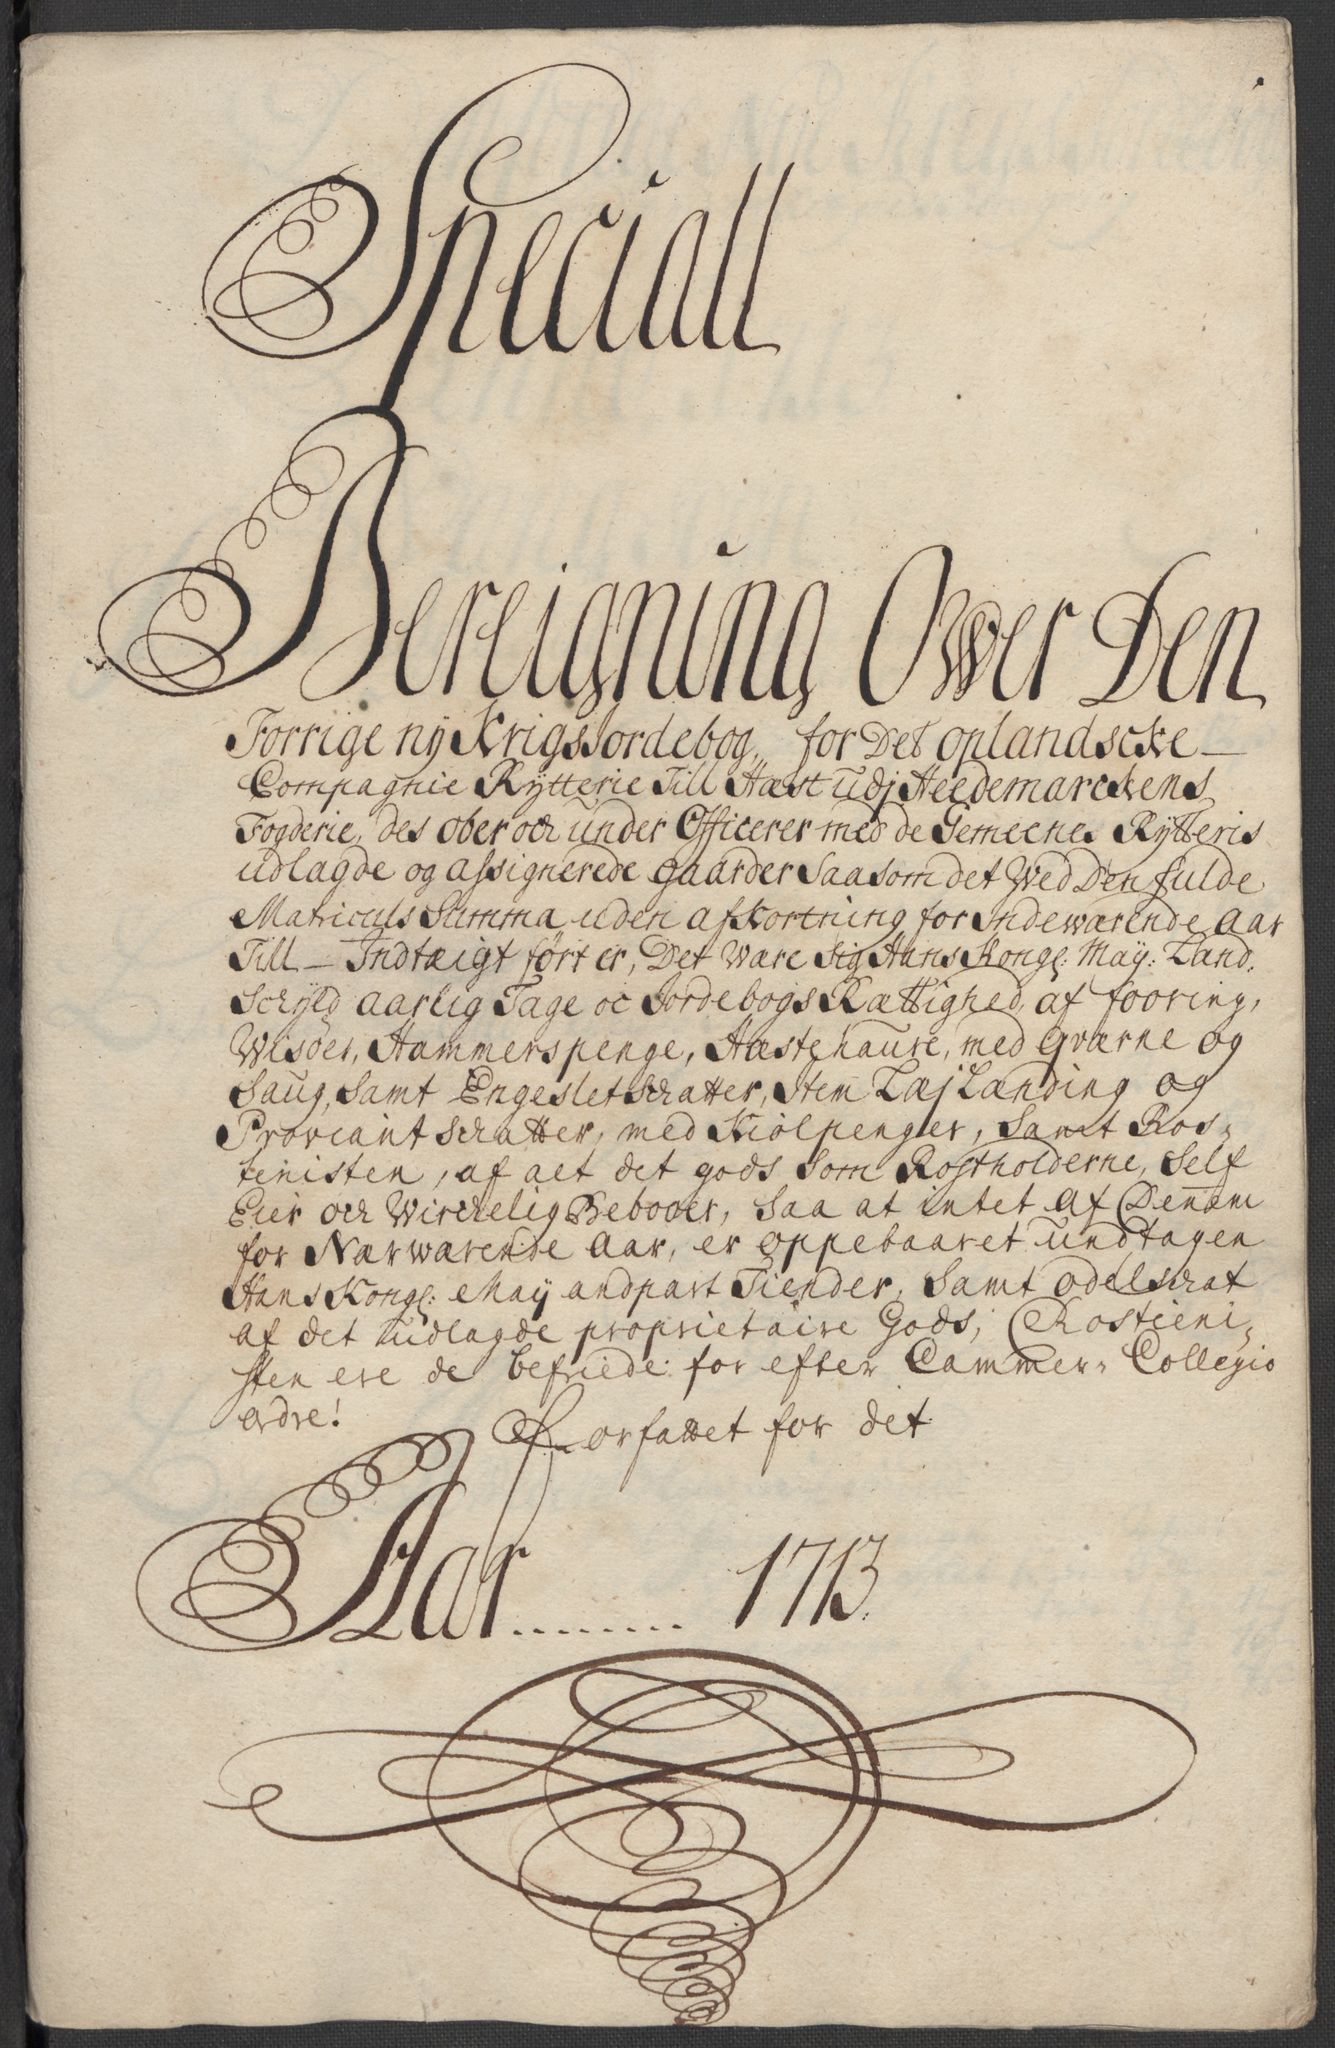 Speciall
Bereigning Owwer Den
Forrige nÿ Krigs Jordebog, for Det oplandscke
Compagnie Rÿtterie Till Hæst udj Heedemarckens
Fogderie, des ober och under Officerer med de Gemeenes Rÿtteris
udlagde og assignerede gaarder Saasom det Wed Den fulde
Matriculs Summa uden afkortning for Indewærende aar
Till Indtæigt ført er, Det være sig Hans Kongl: Maÿ: Land,
Schÿld aarlig Tage oc Jordebogs Rættighed, af fooring,
Wisøer, Hammerspenge, Hæstehaure, med Qværne og
Saug, Samt Engeslet schatter, Item Læj Lænding og
Proviant schatter, med Kiølpenger, Samt Ros,
tienisten, af alt det gods Som Rostholderne, Self
Eier och Wirckelig Beboer, Saa at intet af Dennem
for Nærwærende Aar, er oppebaaret undtagen
Hans Kongl: Maÿ andpart Tiender, Samt odelschat
af det udlagde proprietaire Gods, (Rostieni,
sten ere de befriede for efter Cammer Collegio
ordre!
Forfattet for det
Aar ........ 1713.